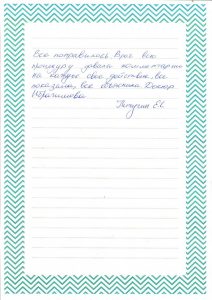 Все понравилось Врач всю
процедуру давала комментарии
на каждое свое действие, все
показала, все объяснила Доктор
Ибрагимова